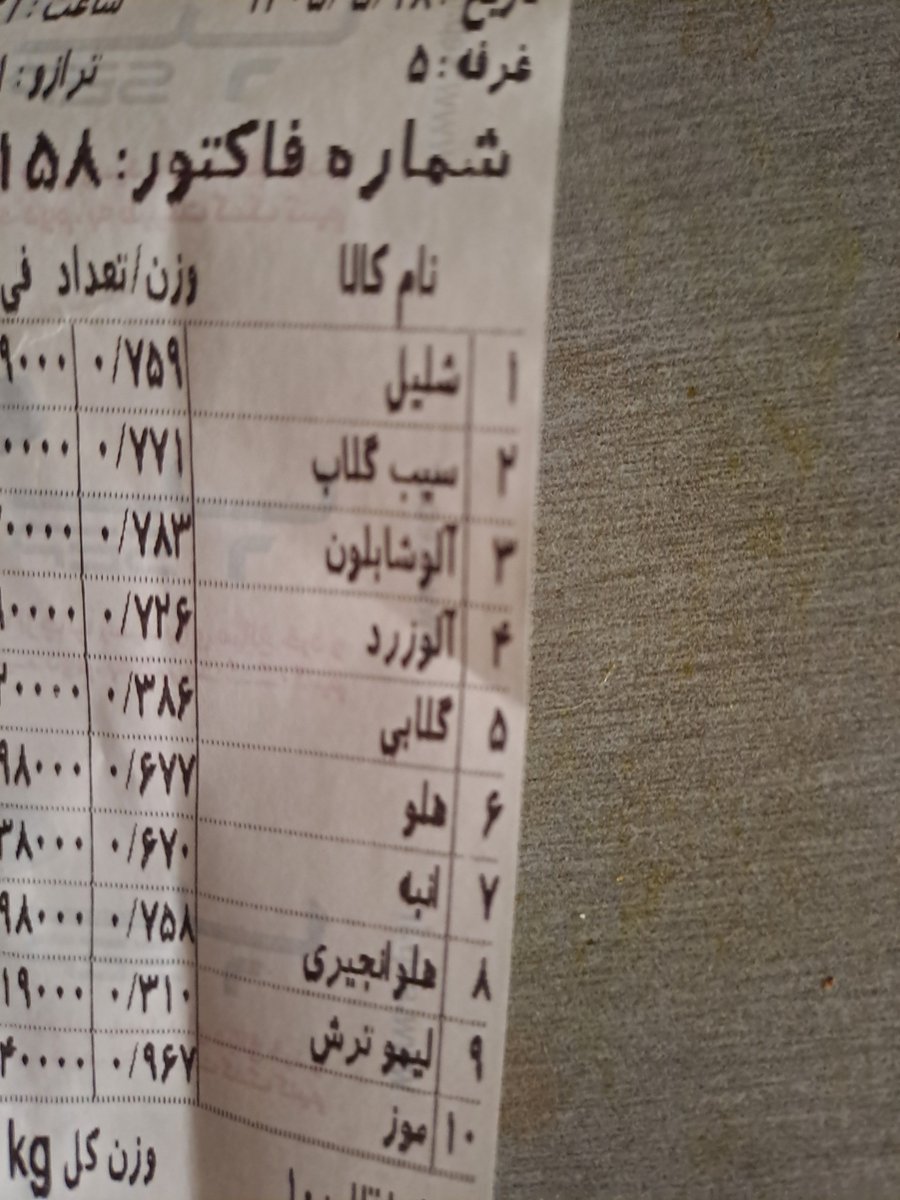 غرفه: ۵ ترازو:
شماره فاکتور: ۱۵۸
نام کالا وزن/تعداد فی
۱ شلیل ۰/۷۵۹ ۹۰۰۰
۲ سیب گلاب ۰/۷۷۱ ۰۰۰۰
۳ آلوشابلون ۰/۷۸۳ ۰۰۰۰
۴ آلوزرد ۰/۷۲۶ ۰۰۰۰
۵ گلابی ۰/۳۸۶ ۰۰۰۰
۶ هلو ۰/۶۷۷ ۹۸۰۰۰
۷ انبه ۰/۶۷۰ ۳۸۰۰۰
۸ هلوانجیری ۰/۷۵۸ ۹۸۰۰۰
۹ لیمو ترش ۰/۳۱۰ ۱۹۰۰۰
۱۰ موز ۰/۹۶۷ ۴۰۰۰۰
وزن کل kg